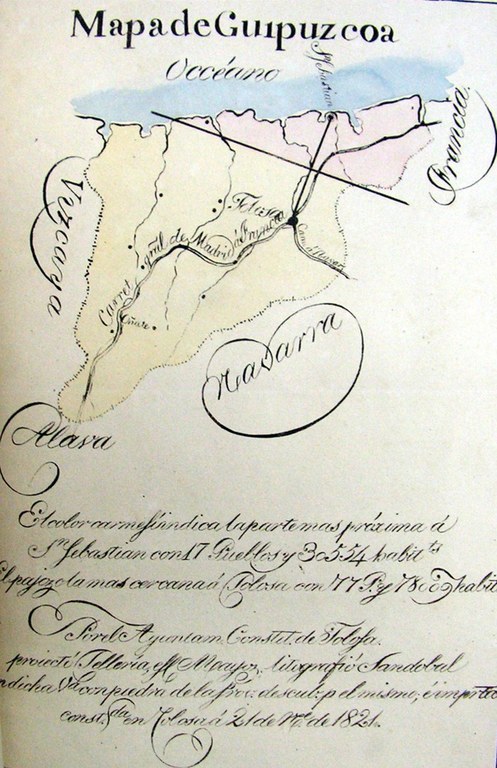 Mapa de Guipuzcoa
Occéano
Sn Sebastian
Francia
Vizcaya
Tolosa
Carret. gñil de Madrid á Francia
Oñate
Navarra
Alava
El color carmesi indica la parte mas próxima á
Sn Sebastian con 17 Pueblos y 30554 habits
El pajizo la mas cercana á Tolosa con 77 P. y 78 habit
Por el Ayuntam. Constel. de Tolosa.
proiectó Telleria, litografió Sandobal
en dicha con piedra de la el mismo, é
const. en Tolosa á 21 de de 1821.